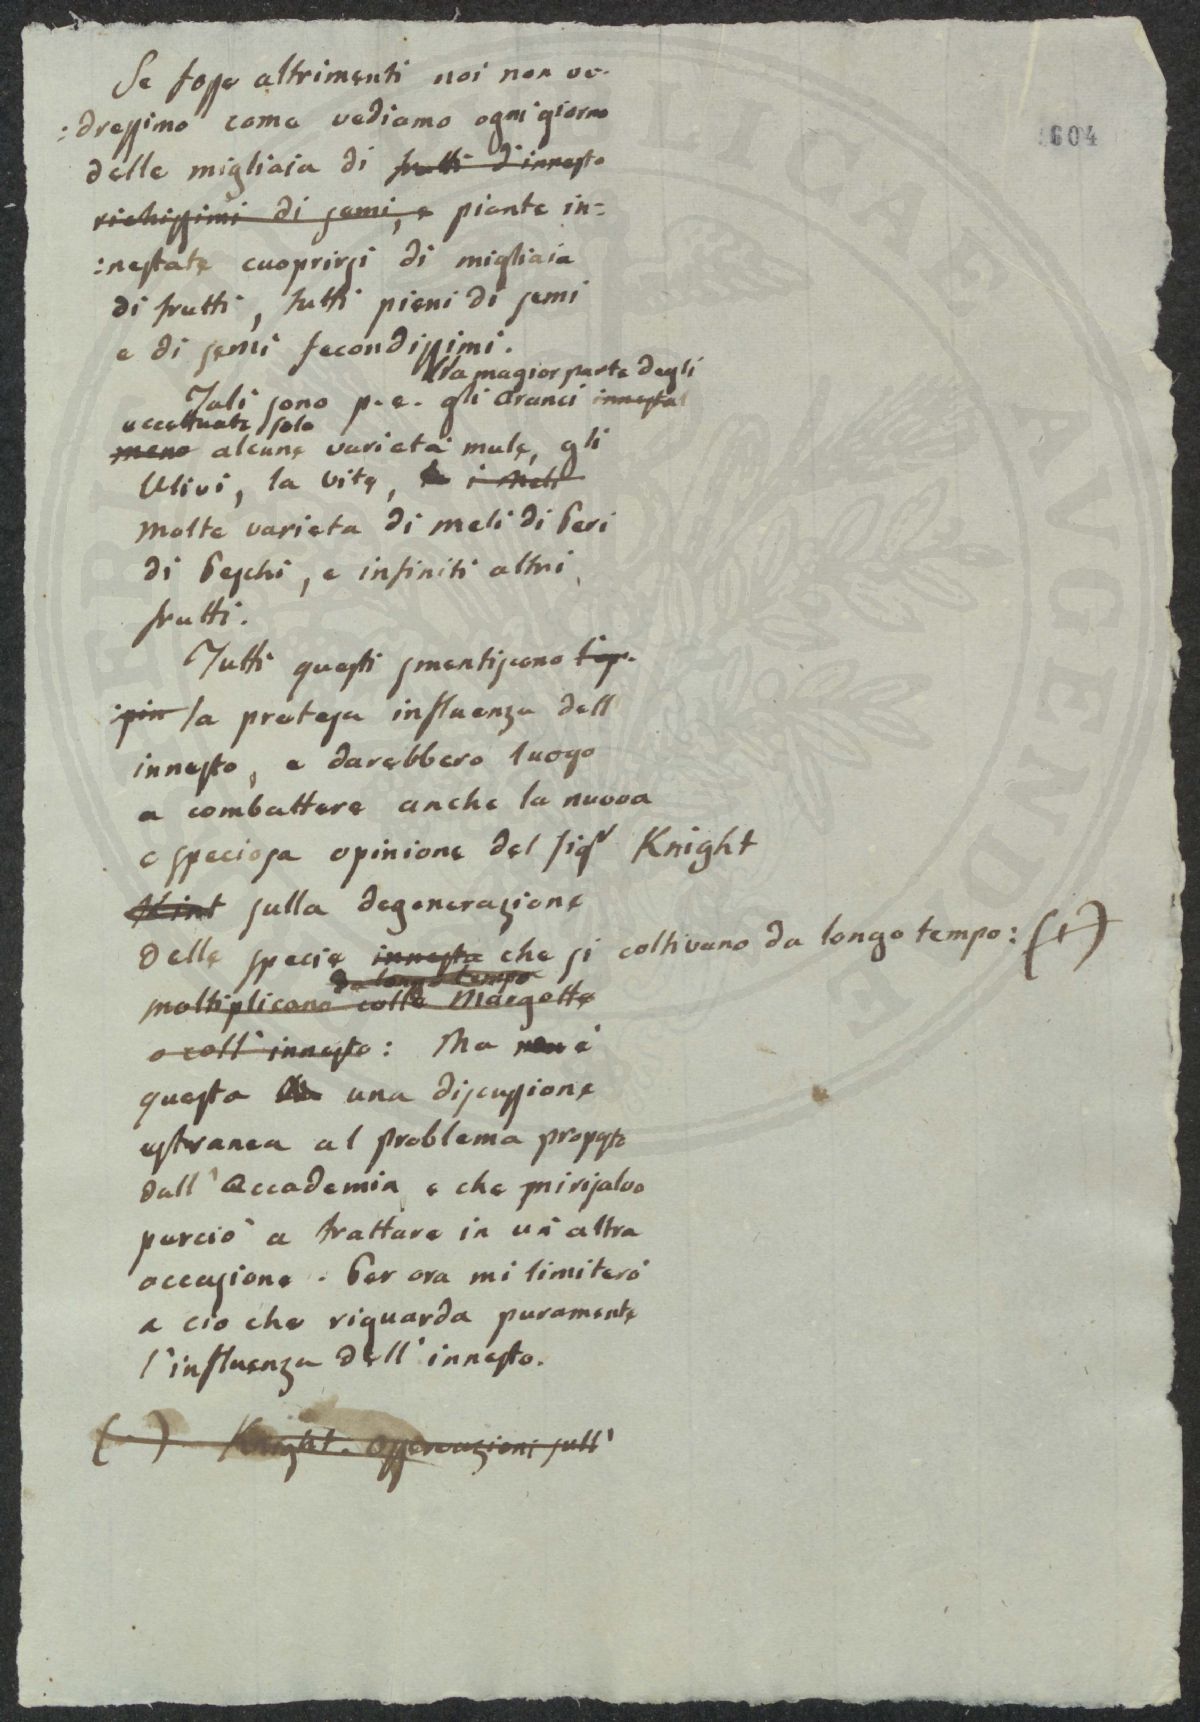 604
Se fosse altrimenti noi non ve-
:dressimo come vediamo ogni giorno
delle migliaia di frutti d'innesto
richissimi di semi, e piante in=
:nestate cuoprirsi di migliaia
di frutti, tutti pieni di semi
e di semi fecondissimi.
la magior parte degli
Tali sono p. e. gli Aranci innestati
eccettuate solo
meno alcune varietà mule, gli
Ulivi, la vite, i Meli
molte varieta di meli di Peri
di Peschi, e infiniti altri
frutti.
Tutti questi smentiscono
la pretesa influenza dell
innesto, e darebbero luogo
a combattere anche la nuova
e speciosa opinione del Sigr Knight
sulla degenerazione
delle specie innesta che si coltivano da longo tempo: (1)
da longo tempo
moltiplicano colle Margotte
o coll'innesto: Ma non è
questa una discussione
estranea al problema proposto
dall'Accademia e che mi risalvo
perciò a trattare in un altra
occasione. Per ora mi limiterò
a ciò che riguarda puramente
l'influenza dell'innesto.
( ) Knight. Osservazioni sull'